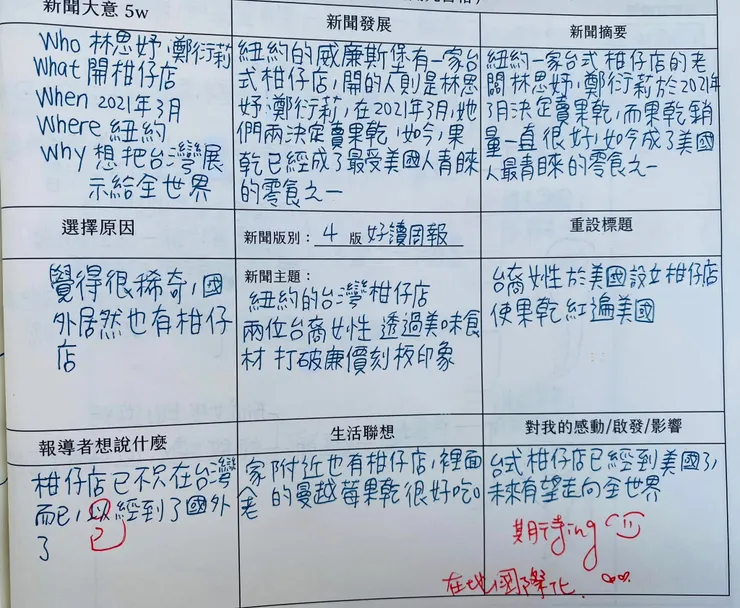 新聞大意 5w
Who 林思妤.鄭衍莉
What 開柑仔店
When 2021年3月
Where 紐約
Why 想把台灣展
示給全世界
新聞發展
紐約的威廉斯堡有一家台
式柑仔店,開的人則是林思
妤.鄭衍莉,在2021年3月,她
們兩決定賣果乾,如今,果
乾已經成了最受美國人青睞
的零食之一
新聞摘要
紐約一家台式柑仔店的老
闆林思妤.鄭衍莉於2021年
3月決定賣果乾,而果乾銷
量一直很好,如今成了美國
人最青睞的零食之一
選擇原因
覺得很稀奇,國
外居然也有柑仔
店
新聞版別:4 版 好讀周報
新聞主題:
紐約的台灣柑仔店
兩位台裔女性 透過美味食
材 打破廉價刻板印象
重設標題
台裔女性於美國設立柑仔店
使果乾紅遍美國
報導者想說什麼
柑仔店已不只在台灣
而已,以經到了國外
已
了
生活聯想
家附近也有柑仔店,裡面
的蔓越莓果乾很好吃。
對我的感動/啟發/影響
台式柑仔店已經到美國了,
未來有望走向全世界
期待ing
在地國際化